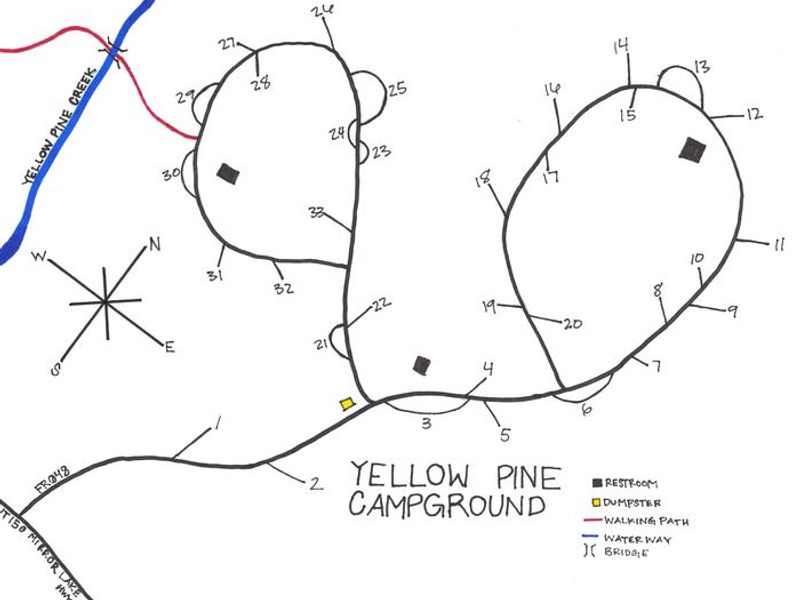 26
27
28
25
14
13
29
16
15
12
YELLOW PINE CREEK
24
23
17
30
18
33
W
N
11
31
10
32
8
22
19
20
9
21
E
S
7
4
6
3
5
1
2
FR048
YELLOW PINE
CAMPGROUND
RESTROOM
DUMPSTER
WALKING PATH
WATERWAY
BRIDGE
UT150 MIRROR LAKE
HWY